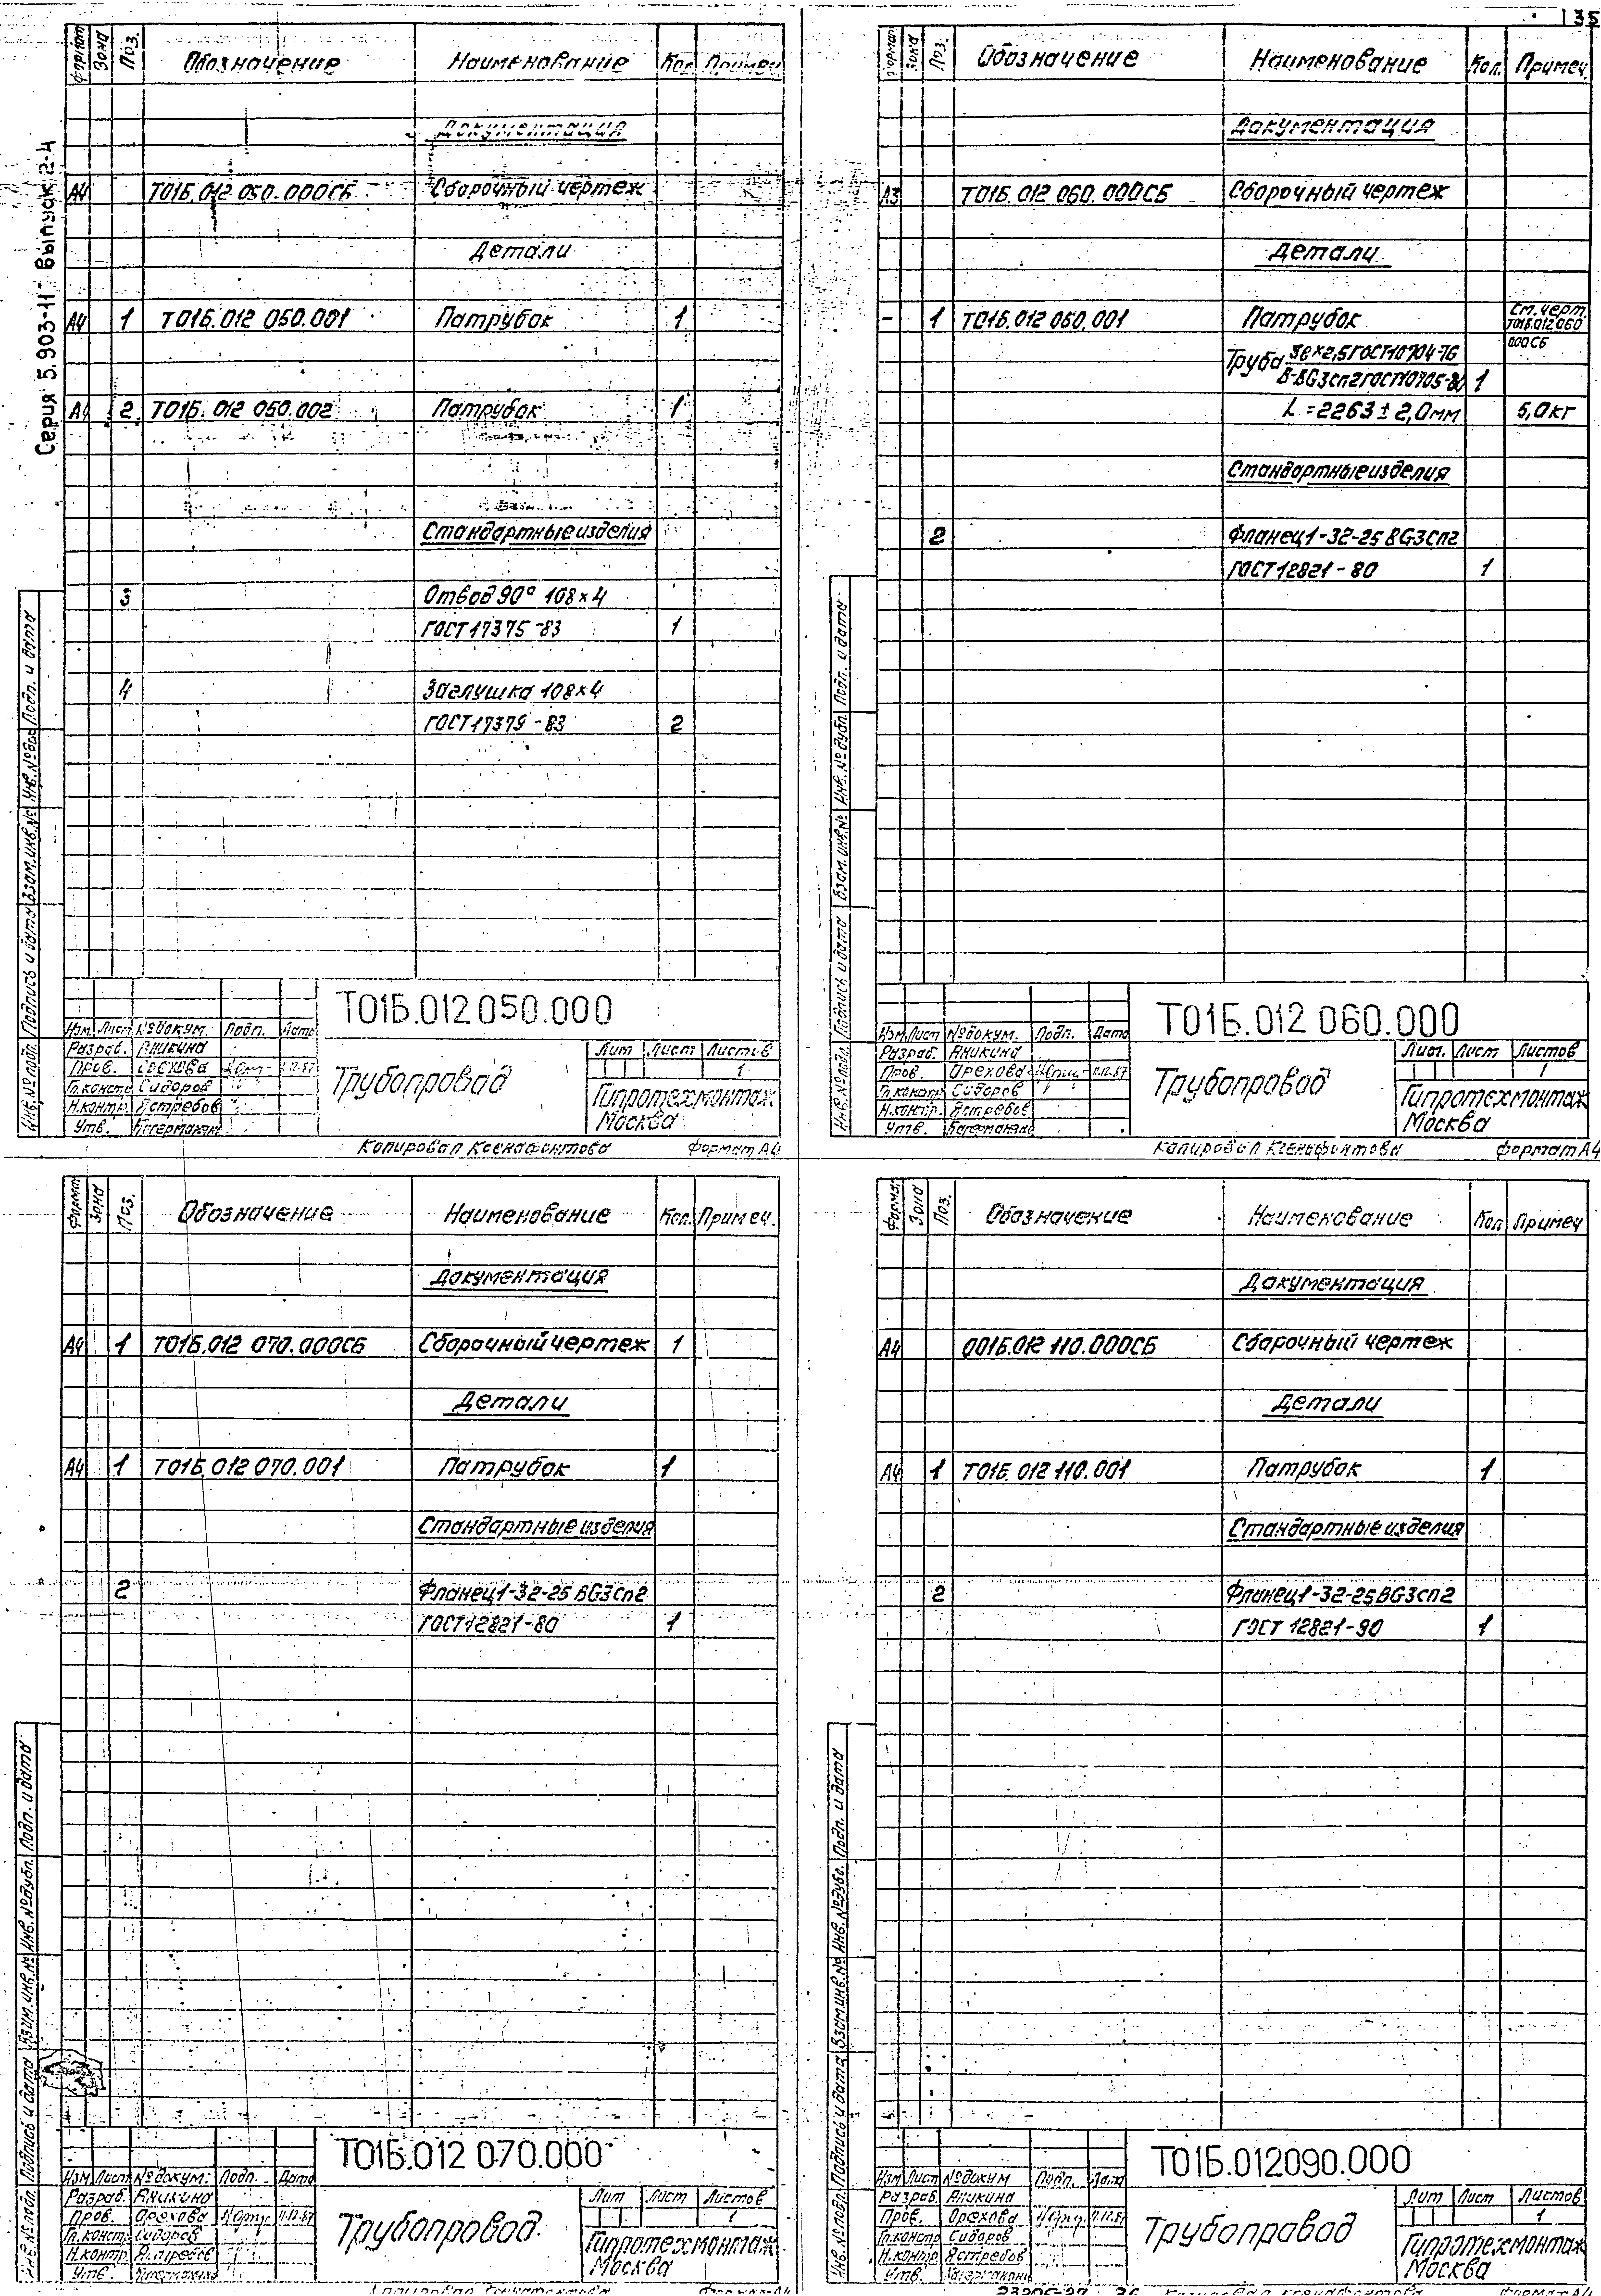 35
Серия 5.903-11 выпуск 2-4
Формат Зона Поз. Обозначение Наименование Кол. Примеч.
Документация
А4 Т01Б.012 050.000СБ Сборочный чертеж
Детали
А4 1 Т01Б.012 050.001 Патрубок 1
А4 2 Т01Б.012 050.002 Патрубок 1
Стандартные изделия
3 Отвод 90° 108×4
ГОСТ 17375-83 1
4 Заглушка 108×4
ГОСТ 17379-83 2
Подп. и дата
Взам. инв. №
Подпись и дата
Инв. № подл.
Т01Б.012 050.000
Изм. Лист № докум. Подп. Дата
Разраб. Аникина
Пров. Орехова
Гл. констр. Сидоров
Н.контр. Ястребов
Утв.
Трубопровод
Лит Лист Листов
1
Гипротехмонтаж
Москва
Копировал Ксенафонтова Формат А4
Формат Зона Поз. Обозначение Наименование Кол. Примеч.
Документация
А3 Т01Б.012 060.000СБ Сборочный чертеж
Детали
- 1 Т01Б.012 060.001 Патрубок См. черт.
Т01Б.012 060
000СБ
Труба 38×2,5 ГОСТ 10704-76
В-ВG3сп2 ГОСТ 10705-80 1
L = 2263 ± 2,0мм 5,0кг
Стандартные изделия
2 Фланец 1-32-25 ВG3сп2
ГОСТ 12821-80 1
Подп. и дата
Инв. № дубл.
Взам. инв. №
Подпись и дата
Инв. № подл.
Т01Б.012 060.000
Изм. Лист № докум. Подп. Дата
Разраб. Аникина
Пров. Орехова
Гл. констр. Сидоров
Н.контр. Ястребов
Утв.
Трубопровод
Лит. Лист Листов
1
Гипротехмонтаж
Москва
Копировал Ксенафонтова Формат А4
Формат Зона Поз. Обозначение Наименование Кол. Примеч.
Документация
А4 1 Т01Б.012 070.000СБ Сборочный чертеж 1
Детали
А4 1 Т01Б.012 070.001 Патрубок 1
Стандартные изделия
2 Фланец 1-32-25 ВG3сп2
ГОСТ 12821-80 1
Подп. и дата
Инв. № дубл.
Взам. инв. №
Подпись и дата
Инв. № подл.
Т01Б.012 070.000
Изм Лист № докум. Подп. Дата
Разраб. Аникина
Пров. Орехова
Гл. констр. Сидоров
Н.контр.
Утв.
Трубопровод
Лит Лист Листов
1
Гипротехмонтаж
Москва
Формат А4
Формат Зона Поз. Обозначение Наименование Кол Примеч
Документация
А4 001Б.012 110.000СБ Сборочный чертеж
Детали
А4 1 Т01Б.012 110.001 Патрубок 1
Стандартные изделия
2 Фланец 1-32-25 ВG3сп2
ГОСТ 12821-90 1
Подп. и дата
Инв. № дубл.
Взам. инв. №
Подпись и дата
Инв. № подл.
Т01Б.012090.000
Изм Лист № докум Подп. Дата
Разраб. Аникина
Пров. Орехова
Гл. констр Сидоров
Н.контр Ястребов
Утв.
Трубопровод
Лит Лист Листов
1
Гипротехмонтаж
Москва
Копировал Ксенафонтова Формат А4